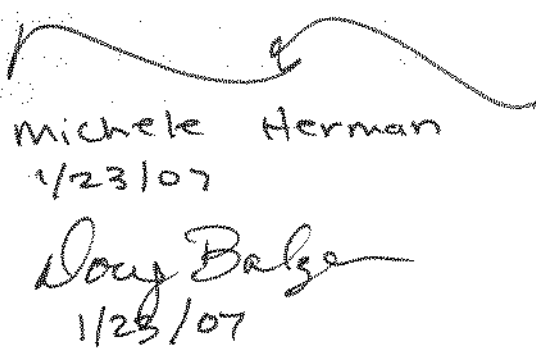 Michele Herman
1/23/07
Doug Balze
1/23/07